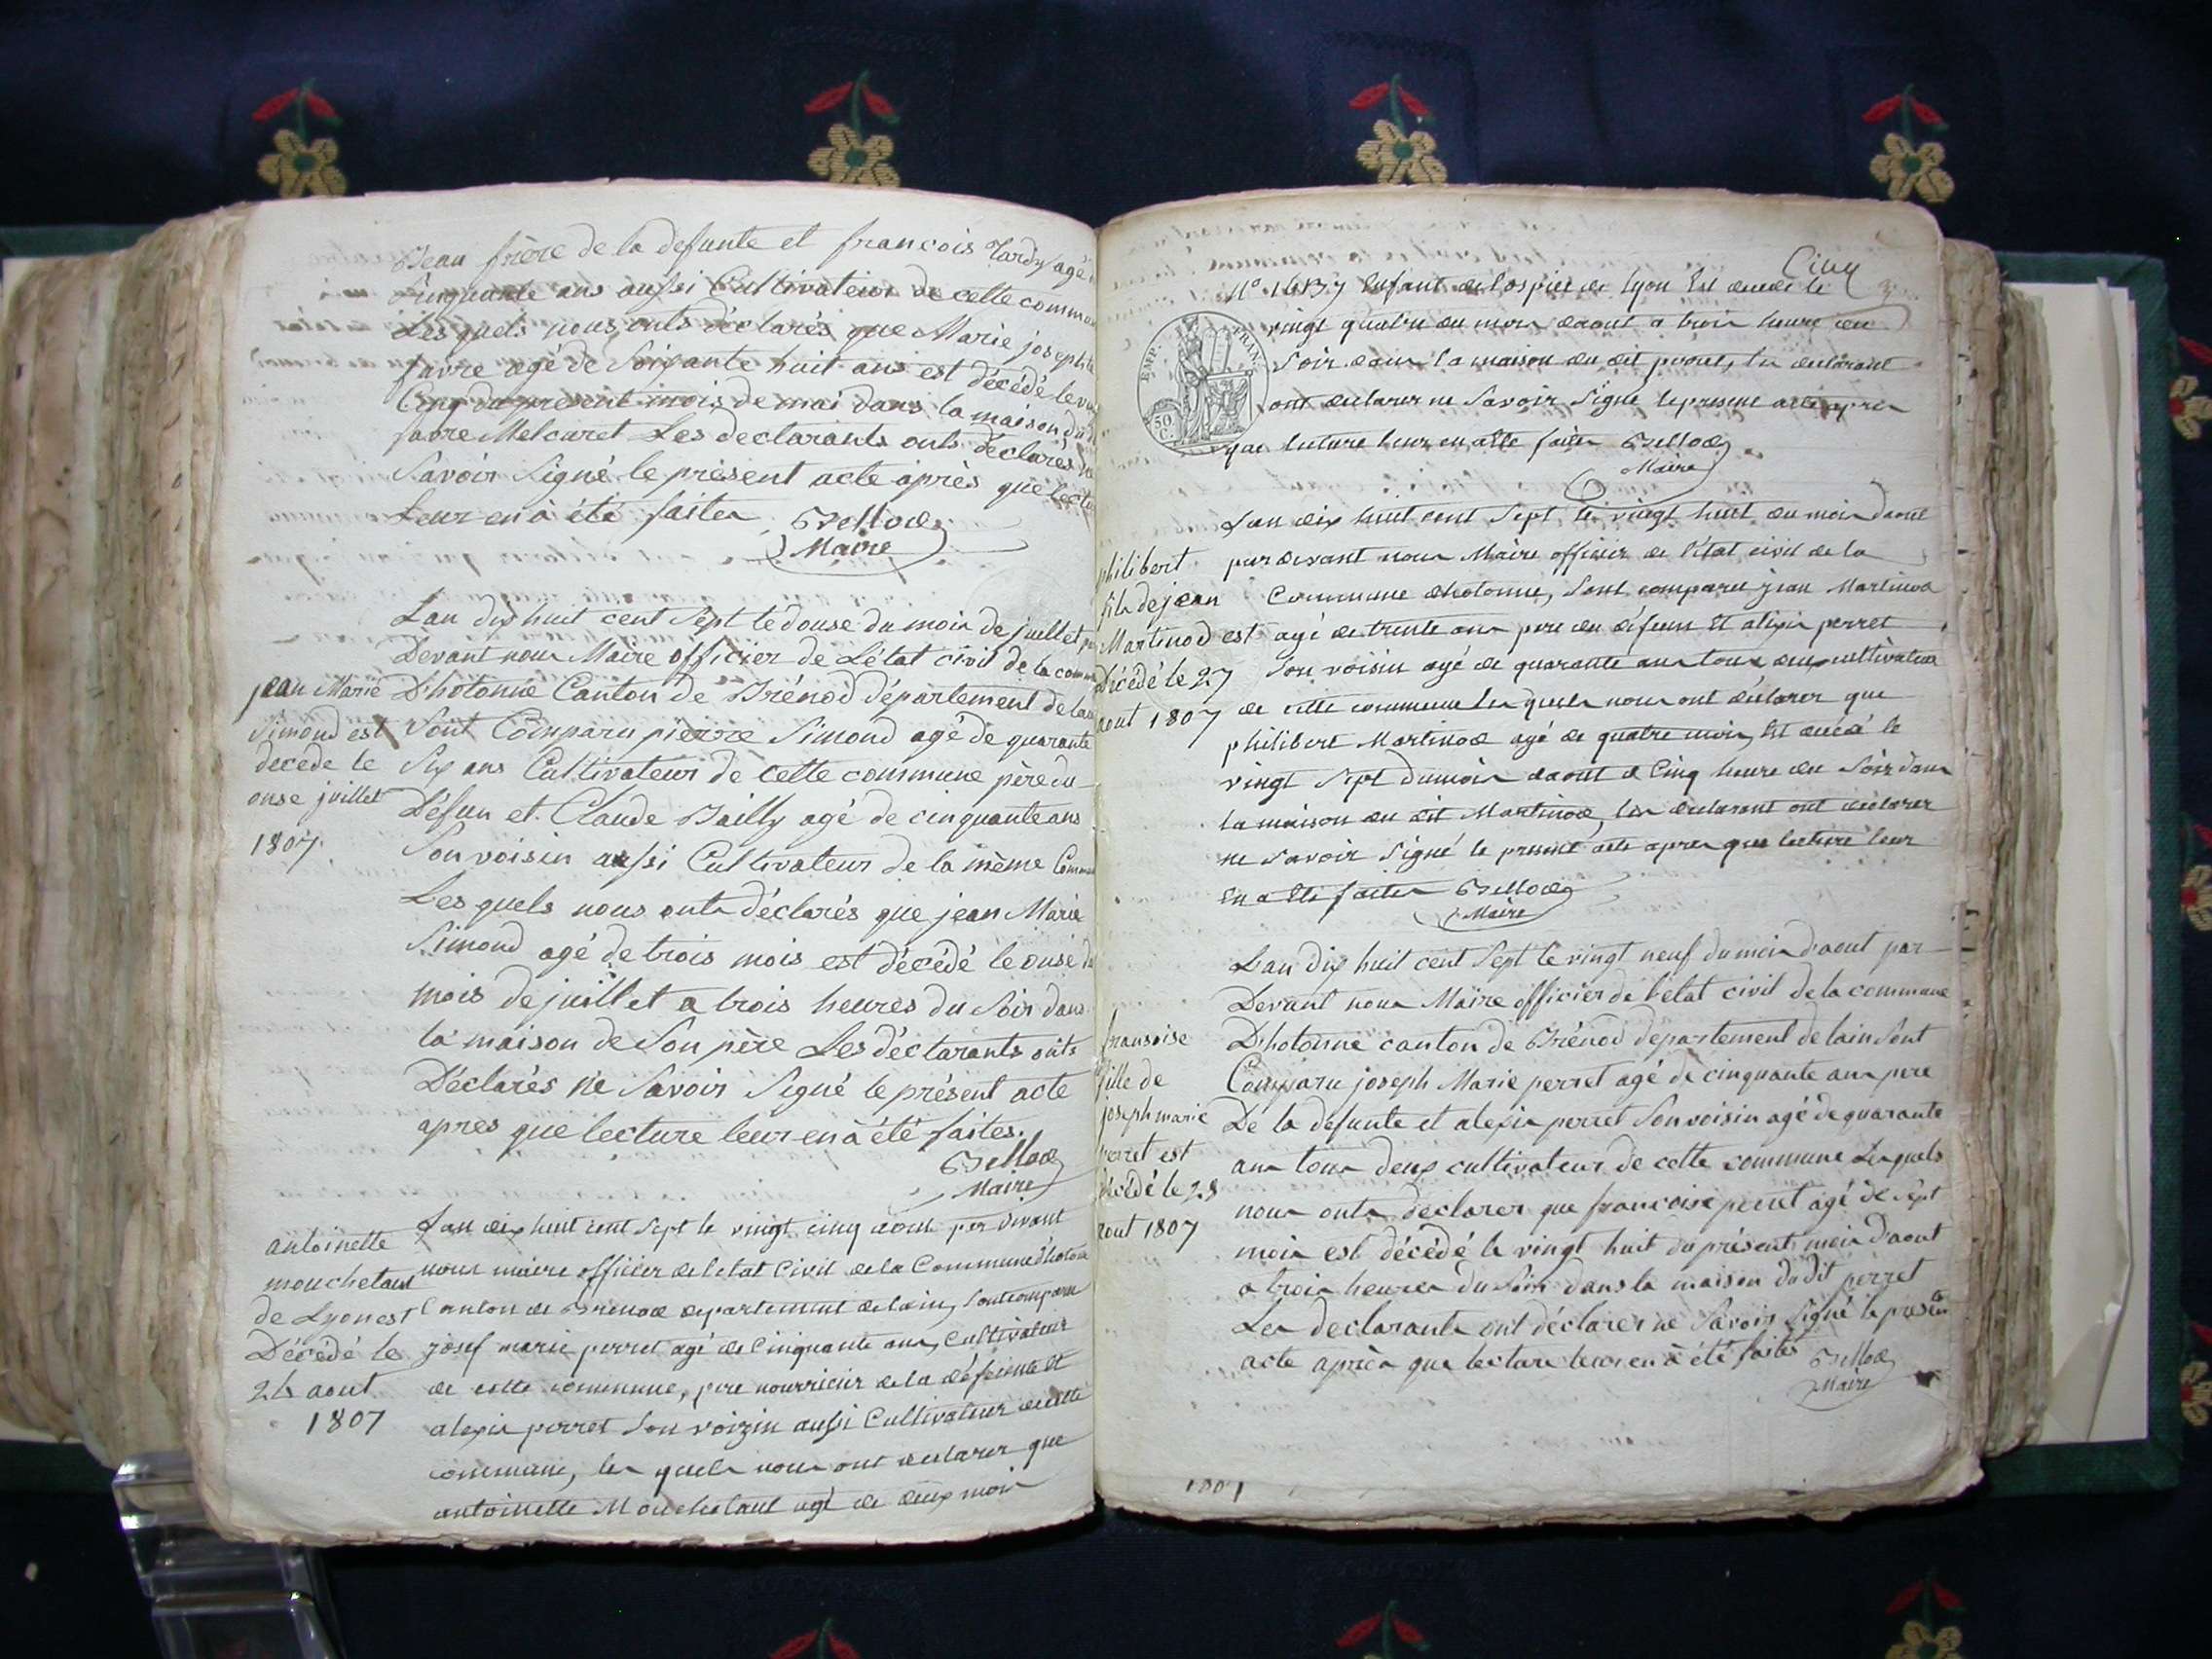 Beau frère de la defunte et françois Tardy agé
Cinquante ans aussi Cultivateur de cette commun
Les quels nous onts déclarés que Marie josephte
favre agé de Soixante huit ans est décédé le
Cinq du present mois de mai dans la maison du
favre Melcuret Les declarants onts déclarés ne
Savoir Signé le présent acte après que lectu
Leur en à été faites Bellod
Maire
Lan dix huit cent Sept le douse du mois de juillet
Devant nous Maire officier de L'état civil de la comm
jean Marie
Simond est
décédé le
onse juillet
1807
Dhotonne Canton de Brénod département de lain
Sont Comparu pierre Simond agé de quarante
Six ans Cultivateur de cette commune père du
Défun et Claude Bailly agé de cinquante ans
Son voisin aussi Cultivateur de la même Commu
Les quels nous onts déclarés que jean Marie
Simond agé de trois mois est décédé le onse du
mois de juillet a trois heures du Soir dans
la maison de Son père Les déclarants onts
Déclarés ne Savoir Signé le présent acte
apres que lecture leur en à été faites.
Bellod
Maire
antoinette
mouchetant
de Lyon est
Décédé le
24 aout
1807
Lan dix huit cent Sept le vingt cinq aout par devant
nous maire officier de letat Civil de la Commune dhotone
Canton de Brenod departement de lain, Sont comparu
josef marie perret agé de Cinquante ans, Cultivateur
de cette commune, pere nourricier de la défeunte et
alexis perret Son voizin aussi Cultivateur de cette
commune, les quels nous ont declarer que
antoinette Mouchetant agé de deux mois
N° 14137 Enfant de lospice de Lyon Est decedé le
vingt quatre du mois daout a trois heure du
Soir dans la maison du dit perret, les declarant
ont declarer ne Savoir Signé le present acte apres
que lecture leur en a été faites Bellod
Maire
EMP. FRAN.
50 C.
philibert
fils de jean
Martinod est
Décédé le 27
aout 1807
Lan dix huit cent Sept le vingt huit du mois daout
par devant nous Maire officier de l'état civil de la
Commune dhotonne, Sont comparu jean Martinod
agé de trente ans pere du défeun Et alexis perret
Son voisin agé de quarante ans tous deux cultivateur
de cette commune Les quels nous ont déclarer que
philibert Martinod agé de quatre mois, Est decédé le
vingt Sept du mois daout a Cinq heure du Soir dans
la maison du dit Martinod, les declarant ont declarer
ne Savoir Signé le present acte apres que lecture leur
En a Eté faites Bellod
Maire
fransoise
fille de
joseph marie
perret est
décédé le 28
aout 1807
Lan dix huit cent Sept le vingt neuf du mois d'aout par
Devant nous Maire officier de l'état civil de la commune
Dhotonne canton de Brénod departement de lain Sont
Comparu joseph Marie perret agé de cinquante ans pere
De la defunte et alexis perret Son voisin agé de quarante
ans tous deux cultivateur de cette commune Lesquels
nous onts declarer que francoise perret agé de sept
mois est décédé le vingt huit du présent mois d'aout
a trois heures du Soir dans la maison du dit perret
Les declarants ont déclarer ne Savoir Signé le present
acte après que lecture leur en à été faites Bellod
Maire
1807